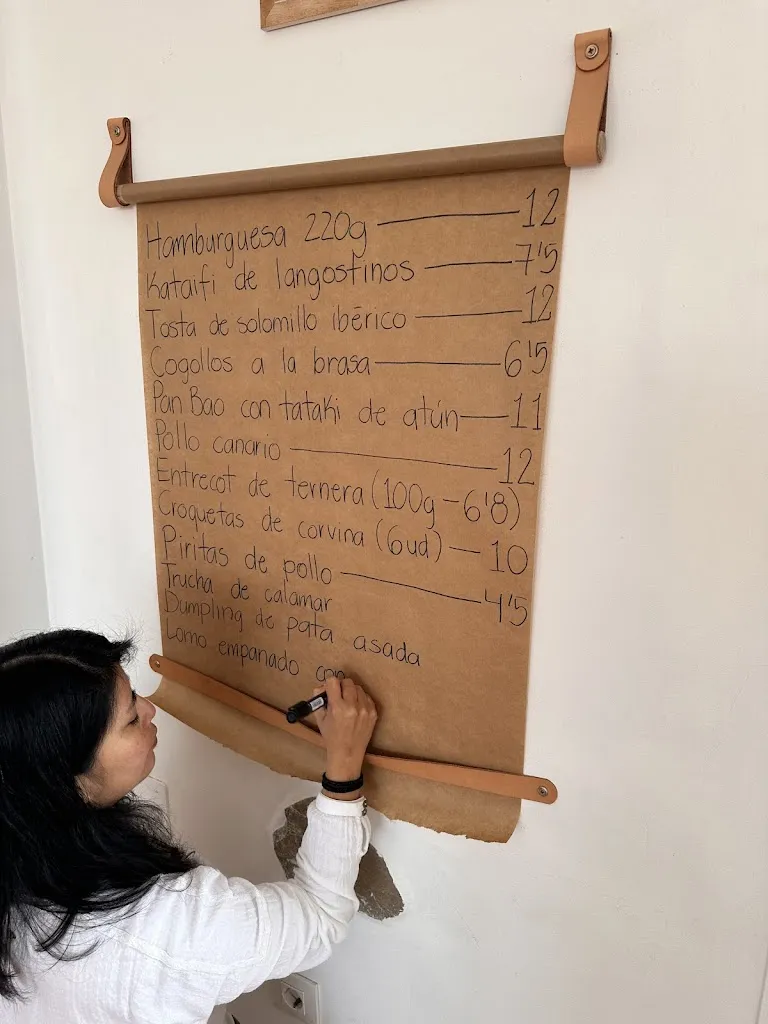 Hamburguesa 220g — 12
Kataifi de langostinos — 7'5
Tosta de solomillo ibérico — 12
Cogollos a la brasa — 6'5
Pan Bao con tataki de atún — 11
Pollo canario — 12
Entrecot de ternera (100g - 6'8)
Croquetas de corvina (6ud) — 10
Piritas de pollo — 4'5
Trucha de calamar
Dumpling de pata asada
Lomo empanado con